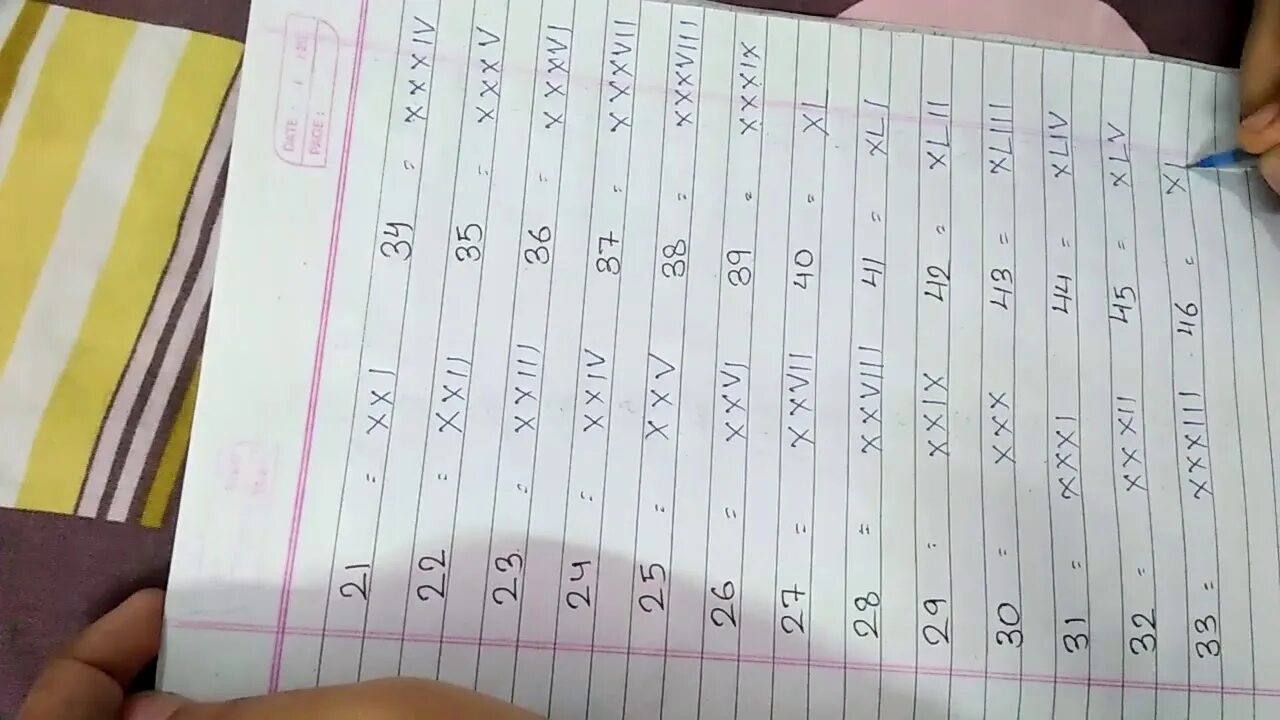 DATE: / /
PAGE:
21 = XXI 34 = XXXIV
22 = XXII 35 = XXXV
23 = XXIII 36 = XXXVI
24 = XXIV 37 = XXXVII
25 = XXV 38 = XXXVIII
26 = XXVI 39 = XXXIX
27 = XXVII 40 = XL
28 = XXVIII 41 = XLI
29 = XXIX 42 = XLII
30 = XXX 43 = XLIII
31 = XXXI 44 = XLIV
32 = XXXII 45 = XLV
33 = XXXIII 46 = XL